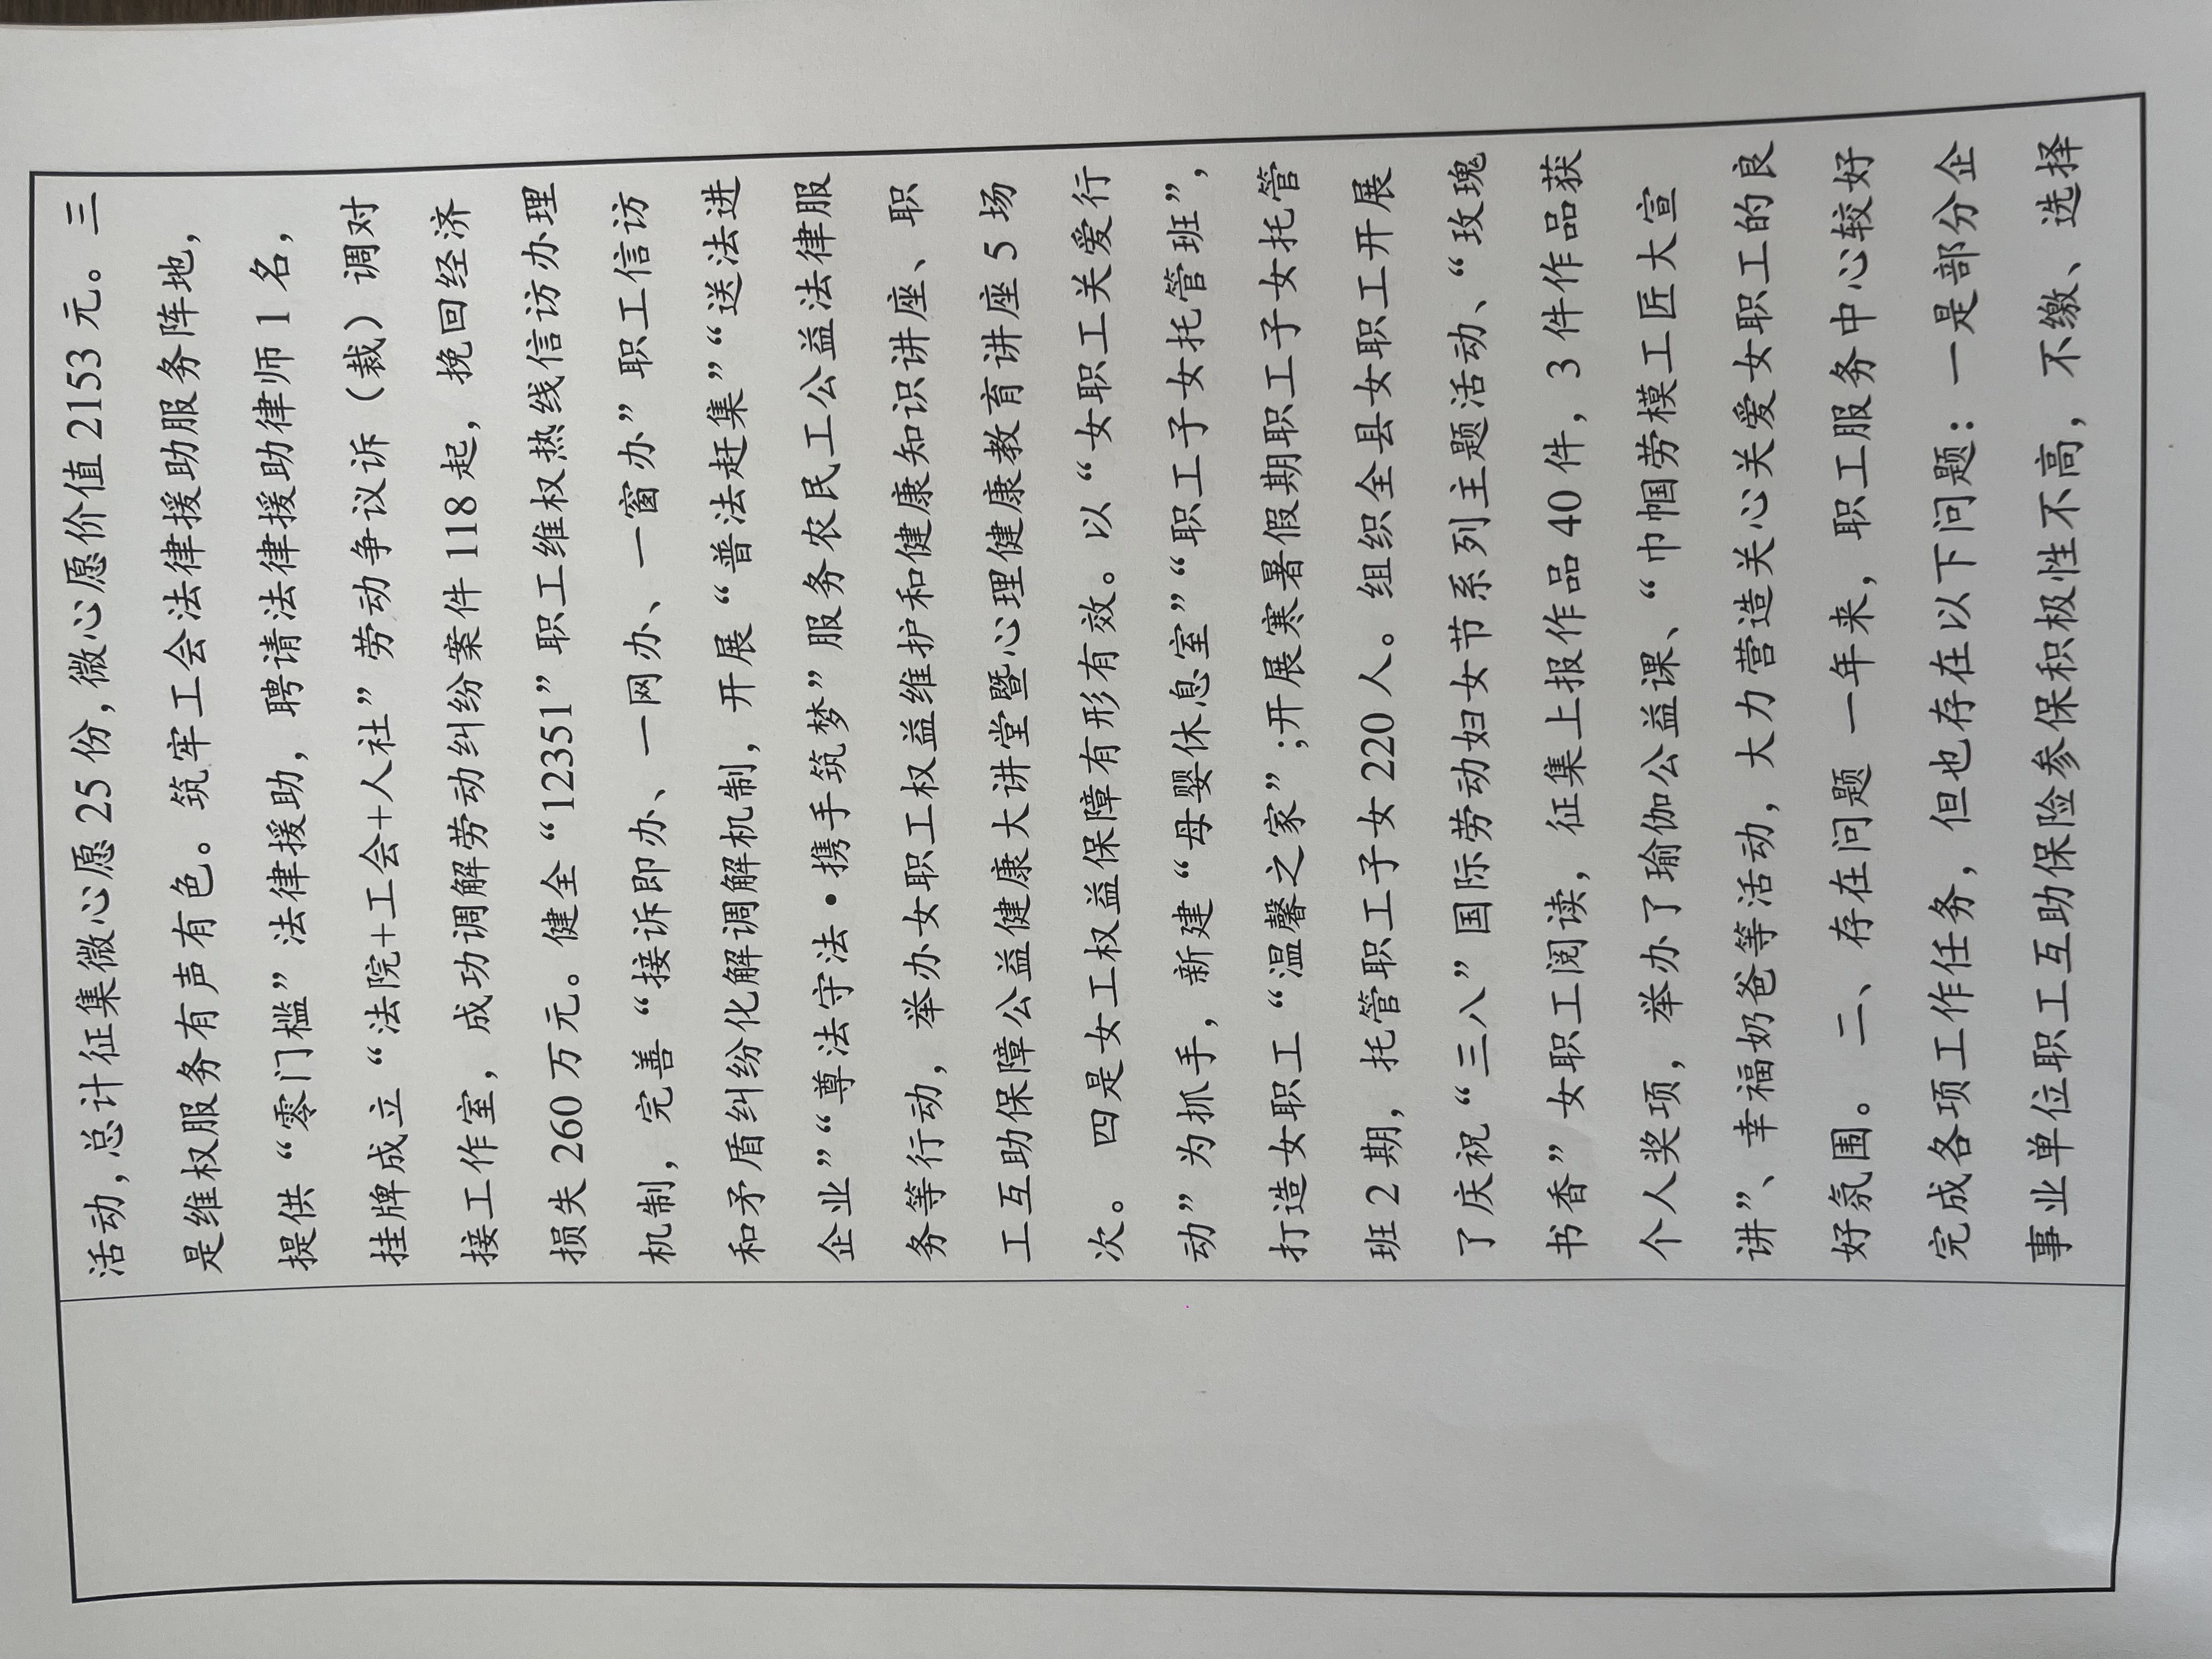 活动,总计征集微心愿 25 份,微心愿价值 2153 元。三
是维权服务有声有色。筑牢工会法律援助服务阵地，
提供“零门槛”法律援助，聘请法律援助律师 1 名，
挂牌成立“法院+工会+人社”劳动争议诉（裁）调对
接工作室，成功调解劳动纠纷案件 118 起，挽回经济
损失 260 万元。健全“12351”职工维权热线信访办理
机制，完善“接诉即办、一网办、一窗办”职工信访
和矛盾纠纷化解调解机制，开展“普法赶集”“送法进
企业”“尊法守法·携手筑梦”服务农民工公益法律服
务等行动，举办女职工权益维护和健康知识讲座、职
工互助保障公益健康大讲堂暨心理健康教育讲座 5 场
次。四是女工权益保障有形有效。以“女职工关爱行
动”为抓手，新建“母婴休息室”“职工子女托管班”，
打造女职工“温馨之家”;开展寒暑假期职工子女托管
班 2 期，托管职工子女 220 人。组织全县女职工开展
了庆祝“三八”国际劳动妇女节系列主题活动、“玫瑰
书香”女职工阅读，征集上报作品 40 件，3 件作品获
个人奖项，举办了瑜伽公益课、“巾帼劳模工匠大宣
讲”、幸福奶爸等活动，大力营造关心关爱女职工的良
好氛围。二、存在问题 一年来，职工服务中心较好
完成各项工作任务，但也存在以下问题：一是部分企
事业单位职工互助保险参保积极性不高，不缴、选择